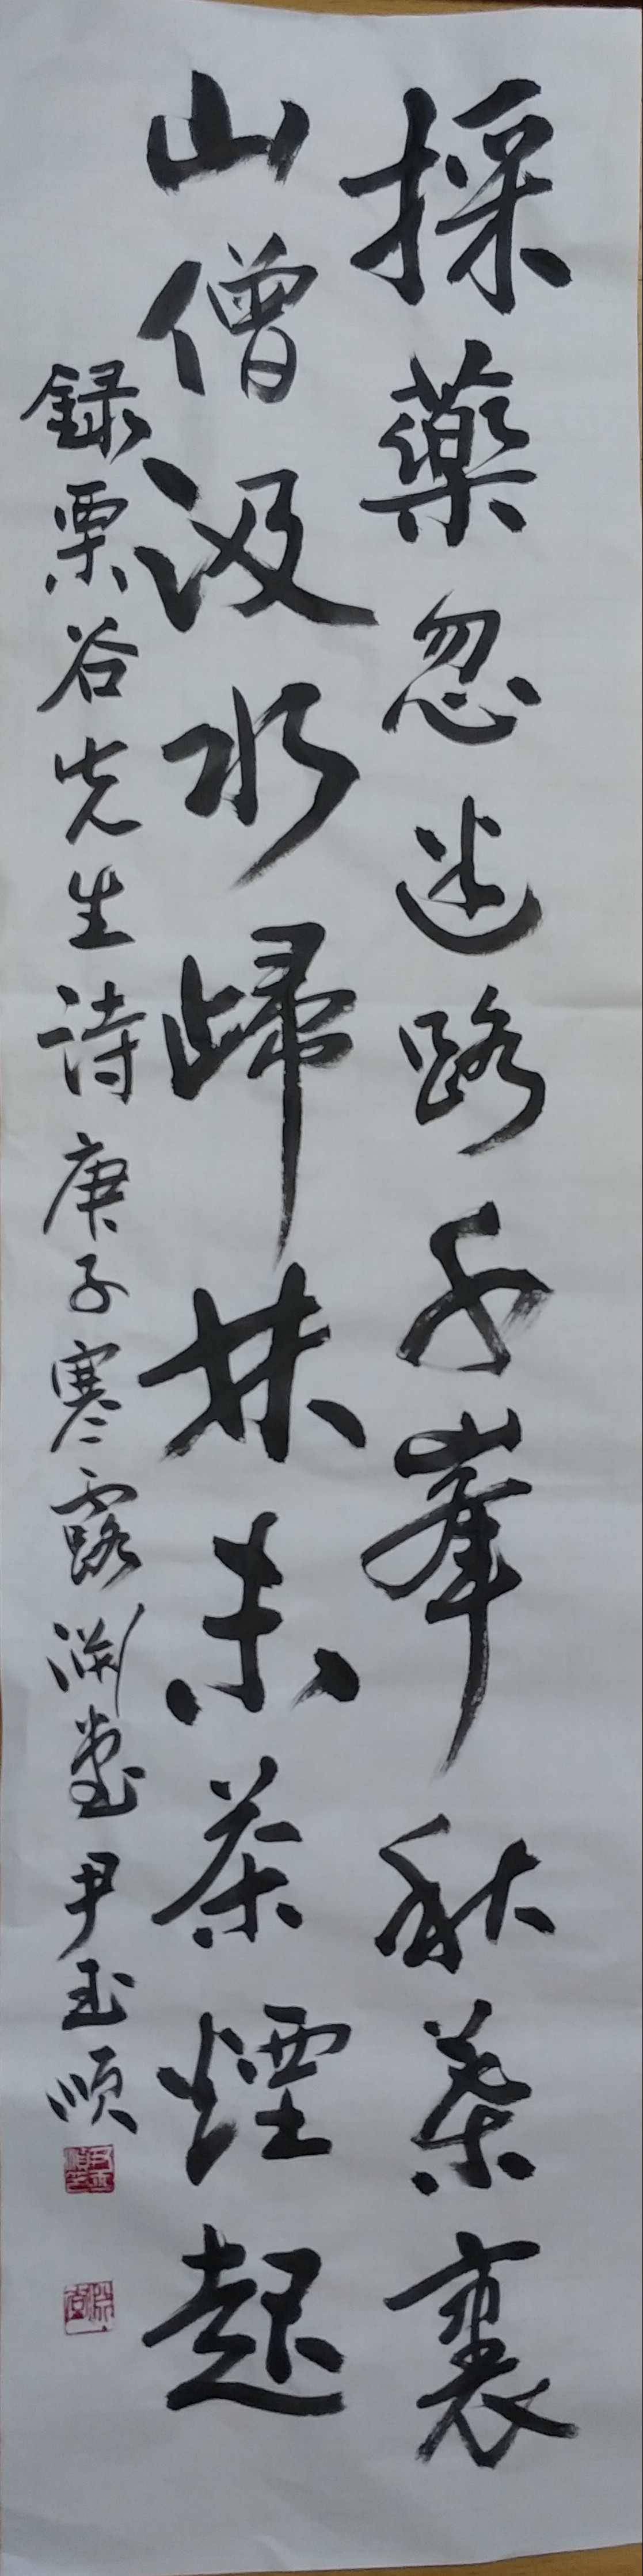 採藥忽迷路千峯秋葉裏
山僧汲水歸林末茶煙起
録栗谷先生詩 庚子寒露 淵堂 尹玉順